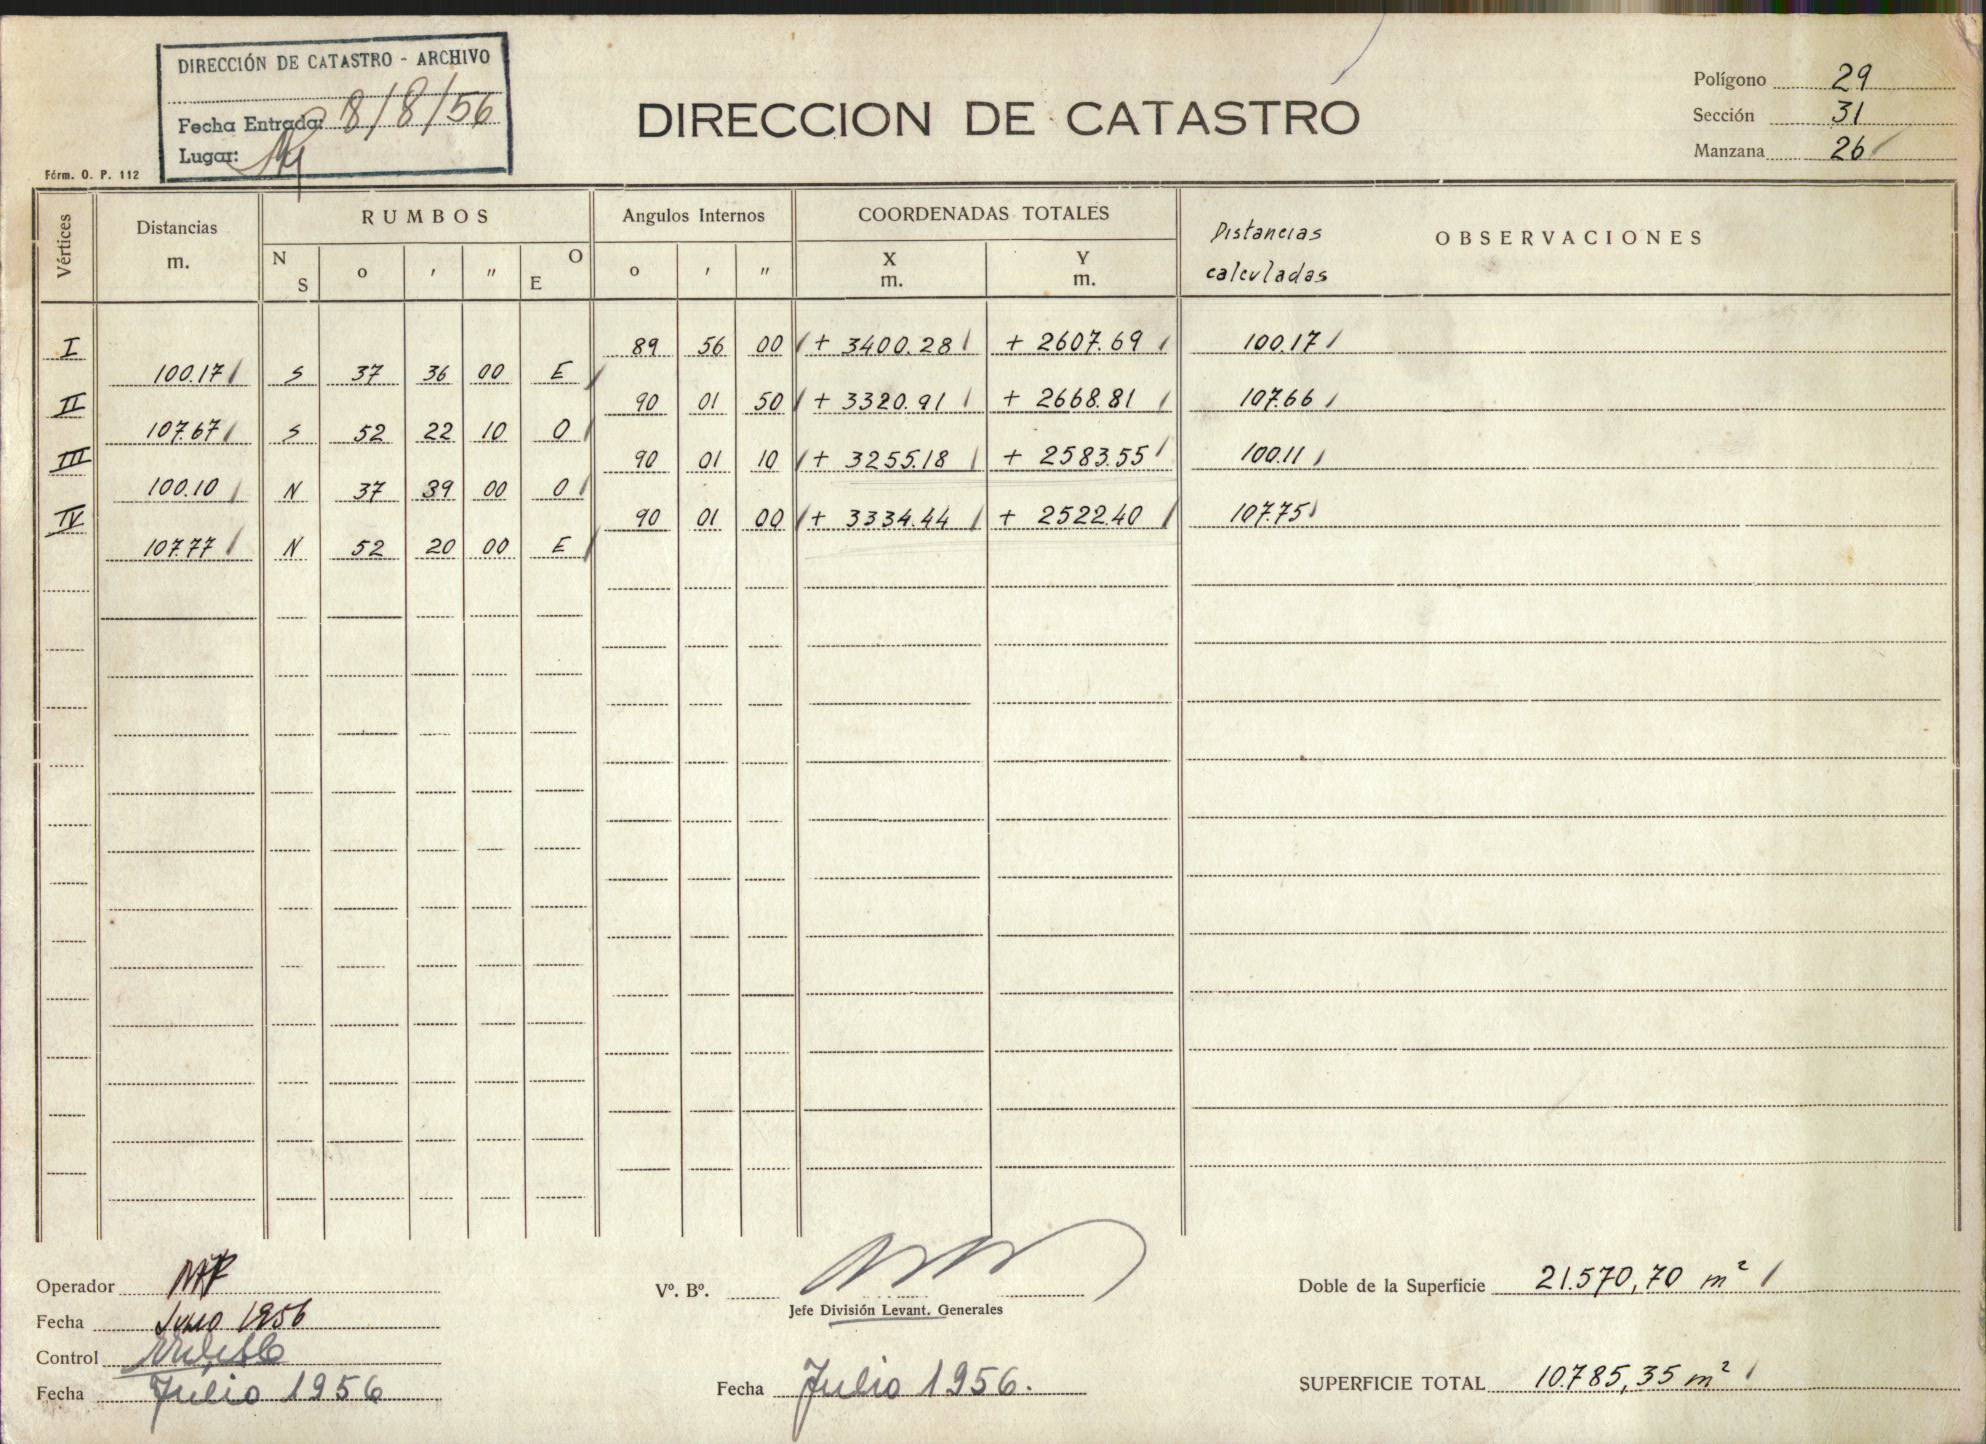 DIRECCIÓN DE CATASTRO - ARCHIVO
Fecha Entrada: 8/8/56
Lugar:
Fórm. O. P. 112
DIRECCION DE CATASTRO
Polígono 29
Sección 31
Manzana 26
Vértices Distancias m. RUMBOS Angulos Internos COORDENADAS TOTALES Distancias calculadas OBSERVACIONES
N S o ' " O E o ' " X m. Y m.
I 89 56 00 + 3400.28 + 2607.69 100.17
100.17 S 37 36 00 E
II 90 01 50 + 3320.91 + 2668.81 107.66
107.67 S 52 22 10 O
III 90 01 10 + 3255.18 + 2583.55 100.11
100.10 N 37 39 00 O
IV 90 01 00 + 3334.44 + 2522.40 107.75
107.77 N 52 20 00 E
Operador
Fecha 1956
Control
Fecha Julio 1956
Vº. Bº.
Jefe División Levant. Generales
Fecha Julio 1956.
Doble de la Superficie 21.570,70 m²
SUPERFICIE TOTAL 10.785,35 m²